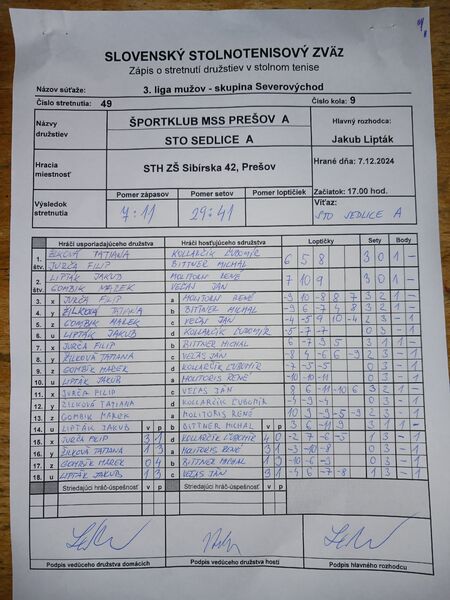 SLOVENSKÝ STOLNOTENISOVÝ ZVÄZ
Zápis o stretnutí družstiev v stolnom tenise
Názov súťaže: 3. liga mužov - skupina Severovýchod
Číslo stretnutia: 49 Číslo kola: 9
Názvy družstiev ŠPORTKLUB MSS PREŠOV A Hlavný rozhodca:
STO SEDLICE A Jakub Lipták
Hracia miestnosť STH ZŠ Sibírska 42, Prešov Hrané dňa: 7.12.2024
Výsledok stretnutia Pomer zápasov Pomer setov Pomer loptičiek Začiatok: 17.00 hod.
7:11 29:41 Víťaz: STO SEDLICE A
Hráči usporiadajúceho družstva Hráči hosťujúceho sdružstva Loptičky Sety Body
1. štv. ŽILKOVÁ TATIANA KOLLARČÍK ĽUBOMÍR 6 5 8 3 0 1 -
JURČA FILIP BITTNER MICHAL
2. štv. LIPTÁK JAKUB MOLITORIS RENÉ 7 10 9 3 0 1 -
GOMBIK MAREK VEĽAS JÁN
3. x JURČA FILIP a MOLITORIS RENÉ -9 10 -8 8 7 3 2 1 -
4. y ŽILKOVÁ TATIANA b BITTNER MICHAL
5. z GOMBIK MAREK c VEĽAS JÁN
6. u LIPTÁK JAKUB d KOLLARČÍK ĽUBOMÍR -5 -7 -7 0 3 - 1
7. x JURČA FILIP b BITTNER MICHAL
8. y ŽILKOVÁ TATIANA c VEĽAS JÁN -8 4 -6 6 -9 2 3 - 1
9. z GOMBIK MAREK d KOLLARČÍK ĽUBOMÍR -7 -5 -5 0 3 - 1
10. u LIPTÁK JAKUB a MOLITORIS RENÉ -10 -10 -11 0 3 - 1
11. x JURČA FILIP c VEĽAS JÁN 8 6 -11 -10 6 3 2 1 -
12. y ŽILKOVÁ TATIANA d KOLLARČÍK ĽUBOMÍR -4 -9 -4 0 3 - 1
13. z GOMBIK MAREK a MOLITORIS RENÉ 10 9 -9 -5 -9 2 3 - 1
14. u LIPTÁK JAKUB v p b BITTNER MICHAL v p
15. x JURČA FILIP 3 1 d KOLLARČÍK ĽUBOMÍR 4 0 -2 7 -6 -5 1 3 - 1
16. y ŽILKOVÁ TATIANA 1 3 a MOLITORIS RENÉ 3 1 -3 -10 -8 0 3 - 1
17. z GOMBIK MAREK 0 4 b BITTNER MICHAL 1 3 -10 -6 -3 0 3 - 1
18. u LIPTÁK JAKUB 1 3 c VEĽAS JÁN 3 1 -6 -7 -8 1 3 - 1
Striedajúci hráč-úspešnosť v p Striedajúci hráč-úspešnosť v p
Podpis vedúceho družstva domácich Podpis vedúceho družstva hostí Podpis hlavného rozhodcu